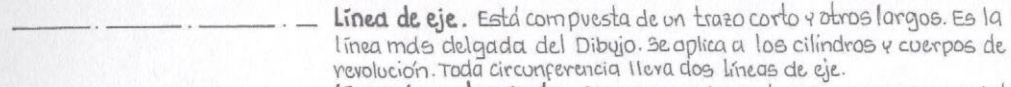 Línea de eje. Está compuesta de un trazo corto y otros largos. Es la
línea más delgada del Dibujo. Se aplica a los cilindros y cuerpos de
revolución. Toda circunferencia lleva dos líneas de eje.